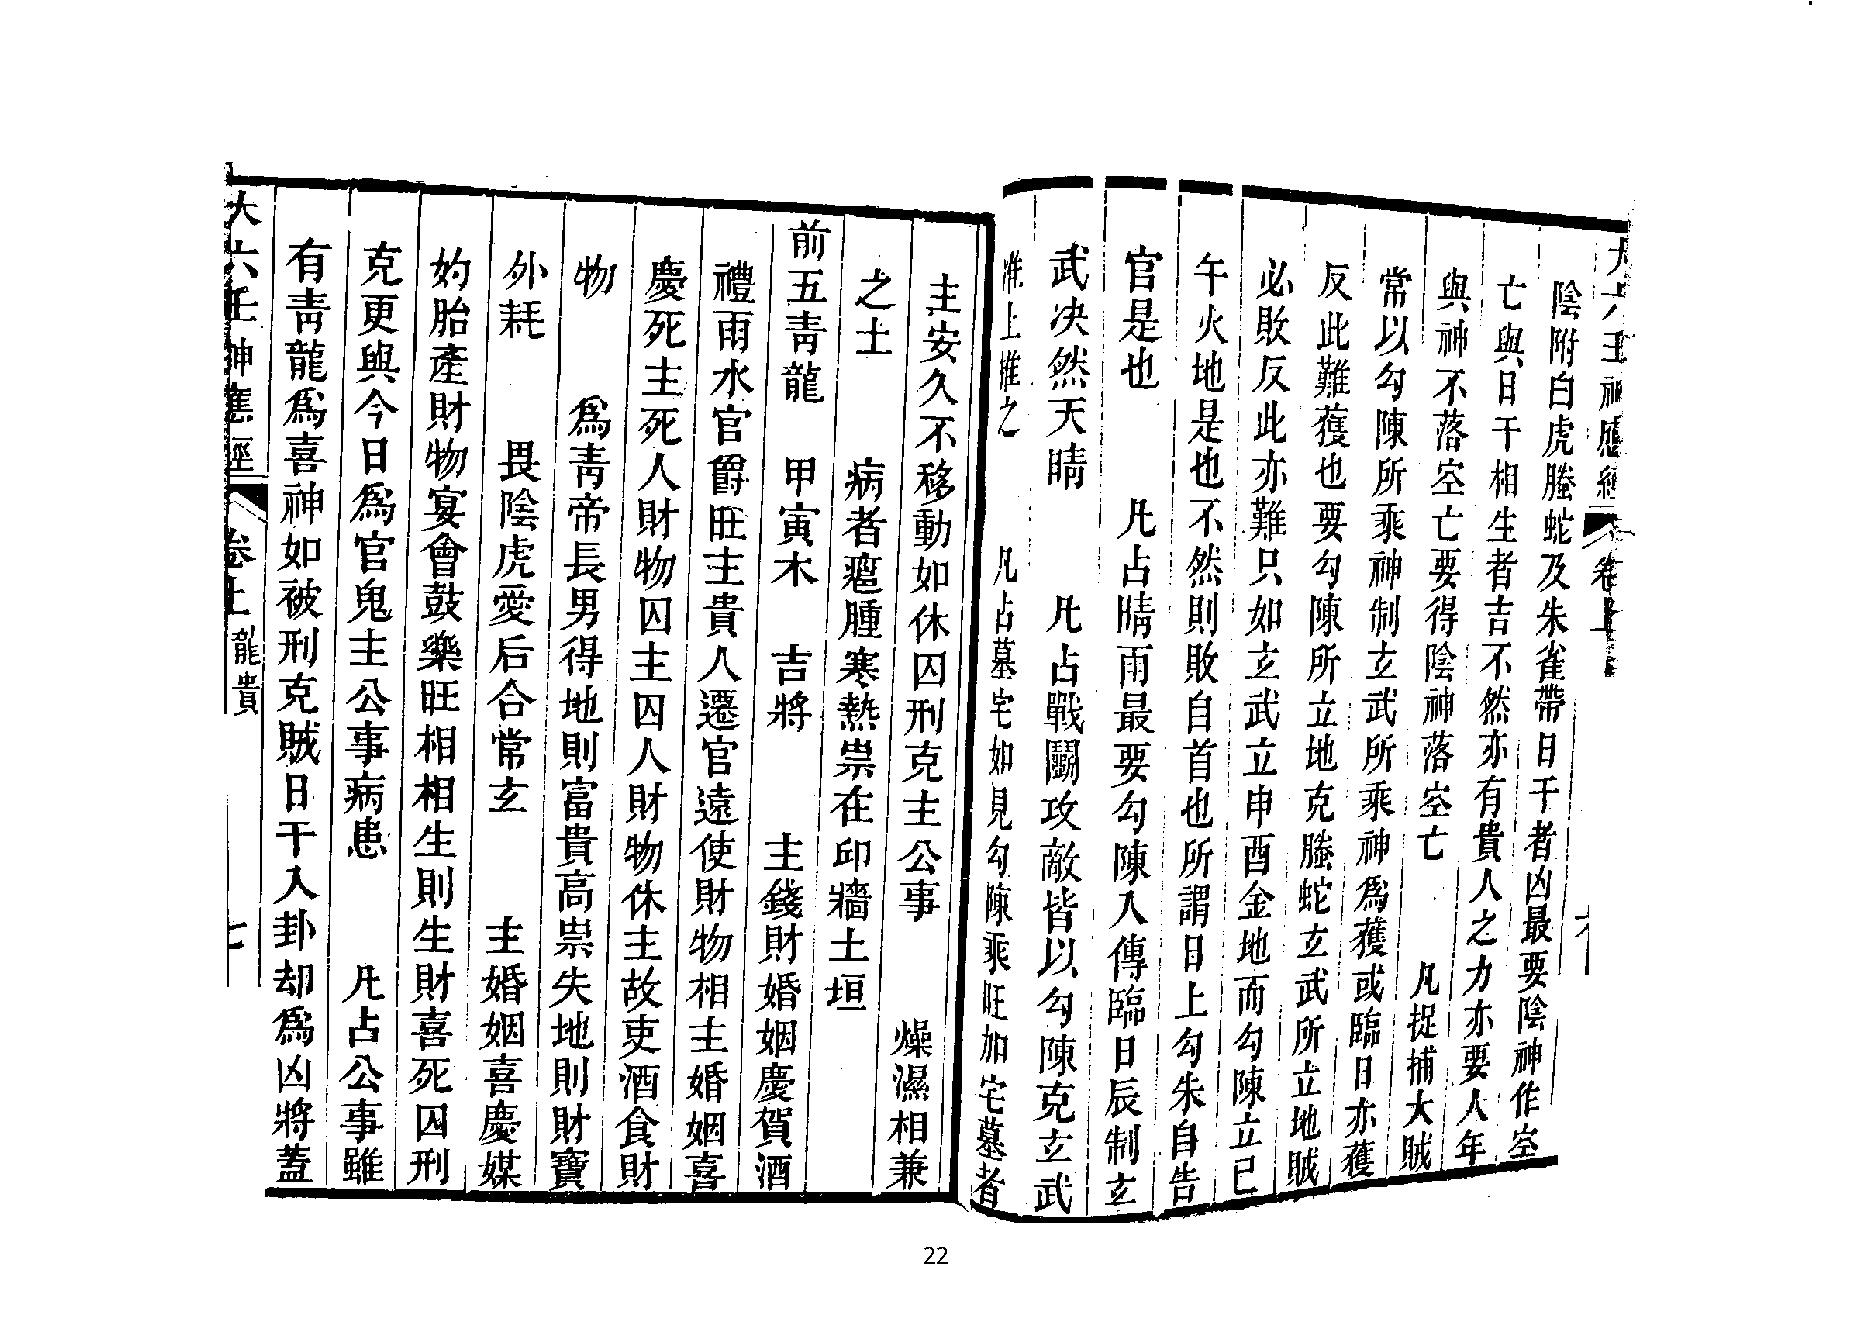 大六壬神應經 卷上 六
陰附白虎螣蛇及朱雀帶日干者凶最要陰神作空
亡與日干相生者吉不然亦有貴人之力亦要人年
與神不落空亡要得陰神落空亡 凡捉捕大賊
常以勾陳所乘神制玄武所乘神爲獲或臨日亦獲
反此難獲也要勾陳所立地克螣蛇玄武所立地賊
必敗反此亦難只如玄武立申酉金地而勾陳立巳
午火地是也不然則敗自首也所謂日上勾朱自告
官是也 凡占晴雨最要勾陳入傳臨日辰制玄
武决然天晴 凡占戰鬬攻敵皆以勾陳克玄武
準上推之 凡占墓宅如見勾陳乘旺加宅墓者
主安久不移動如休囚刑克主公事 燥濕相兼
之土 病者瘟腫寒熱祟在印牆土垣
前五青龍 甲寅木 吉將 主錢財婚姻慶賀酒
禮雨水官爵旺主貴人遷官遠使財物相主婚姻喜
慶死主死人財物囚主囚人財物休主故吏酒食財
物 爲青帝長男得地則富貴高祟失地則財寶
外耗 畏陰虎愛后合常玄 主婚姻喜慶媒
妁胎產財物宴會鼓樂旺相相生則生財喜死囚刑
克更與今日爲官鬼主公事病患 凡占公事雖
有青龍爲喜神如被刑克賊日干入卦却爲凶將蓋
大六壬神應經 卷上 龍貴 七
22